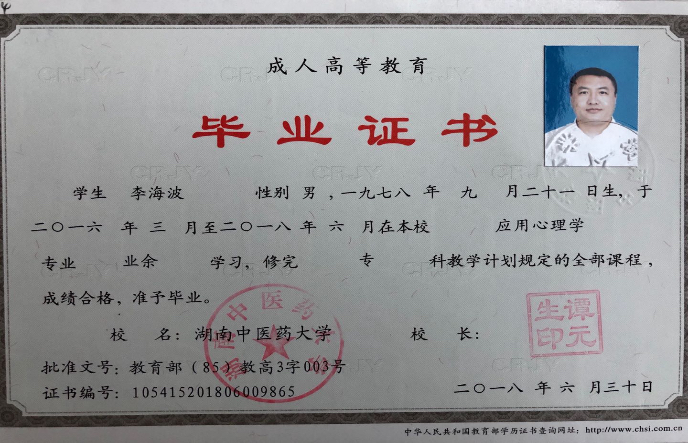 成人高等教育
毕业证书
学生 李海波 性别 男 ,一九七八 年 九 月二十一 日生,于
二〇一六 年 三 月至二〇一八 年 六 月在本校 应用心理学
专业 业余 学习,修完 专 科教学计划规定的全部课程,
成绩合格,准予毕业。
校 名:湖南中医药大学 校 长:
湖南中医药大学
谭元生印
批准文号:教育部(85)教高3字003号
证书编号:105415201806009865 二〇一八 年 六 月三十日
中华人民共和国教育部学历证书查询网址:http://www.chsi.com.cn